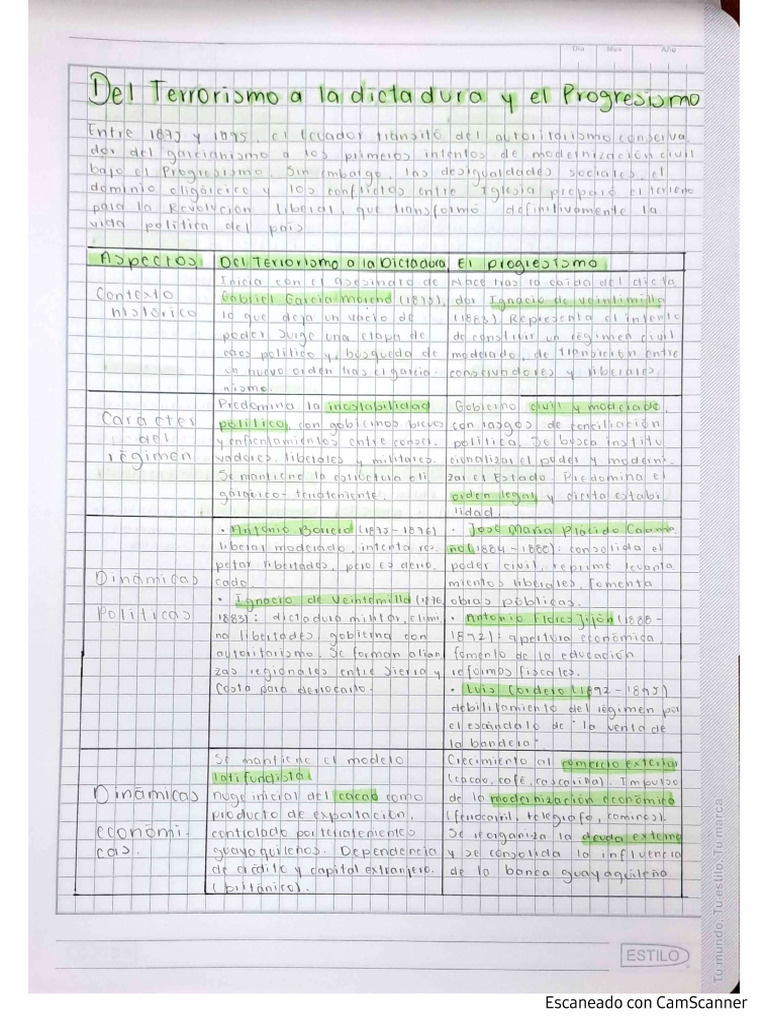 Dia Mes Año
Del Terrorismo a la dictadura y el Progresismo
Entre 1875 y 1895, el Ecuador transitó del autoritarismo conserva
dor del garcianismo a los primeros intentos de modernización civil
bajo el Progresismo. Sin embargo, las desigualdades sociales, el
dominio oligárcico y los conflictos entre Iglesia preparó el terreno
para la Revolución liberal, que transformó definitivamente la
vida política del país
Aspectos
Del Terrorismo a la Dictadura
El progresismo
Contexto
histórico
Inicia con el asesinato de
Gabriel García Moreno (1875),
lo que deja un vacío de
poder surge una etapa de
caos político y búsqueda de
un nuevo orden tras el garcia-
nismo.
Nace tras la caída del dicta
dor Ignacio de Veintimilla
(1883) Representa el intento
de construir un régimen civil
moderado, de transición entre
conservadores y liberales.
Carácter
del
régimen
Predomina la inestabilidad
política, con gobiernos breves
y enfrentamientos entre conser.
vadores, liberales y militares.
Se mantiene la estructura oli
gárquico-terrateniente.
Gobierno civil y moderado,
con rasgos de conciliación
política. Se busca institu
cionalizar el poder y moderni.
zar el Estado. Predomina el
orden legal y cierta estabi
lidad.
Dinámicas
Políticas
• Antonio Borrero (1875-1876)
liberal moderado, intenta res.
petar libertades, pero es derro.
cado.
• Ignacio de Veintemilla (1876
1883): dictadura militar, elimi_
na libertades, gobierna con
autoritarismo. Se forman alian
zas regionales entre Sierra y
Costa para derrocarlo.
• José María Plácido Caama
ño (1884-1888): consolida el
poder civil, reprime levanta
mientos liberales, fomenta
obras públicas.
• Antonio Flores Jijón (1888-
1892): apertura económica,
fomento de la educación
y reformas fiscales.
• Luis Cordero (1892-1895)
debilitamiento del régimen por
el escándalo de "la venta de
la bandera"
Dinámicas
económi-
cas.
Se mantiene el modelo
latifundista
nuge inicial del cacao como
producto de exportación,
controlado por terratenientes
guayaquileños. Dependencia
de crédito y capital extranjero.
(británico).
Crecimiento al comercio exterior
(cacao, café, cascarilla). Impulso
de la modernización económica
(ferrocarril, telégrafo, caminos).
Se reorganiza la deuda externa
y se consolida la influencia
de la banca guayaquileña
ESTILO
Tu mundo. Tu estilo. Tu marca
Escaneado con CamScanner